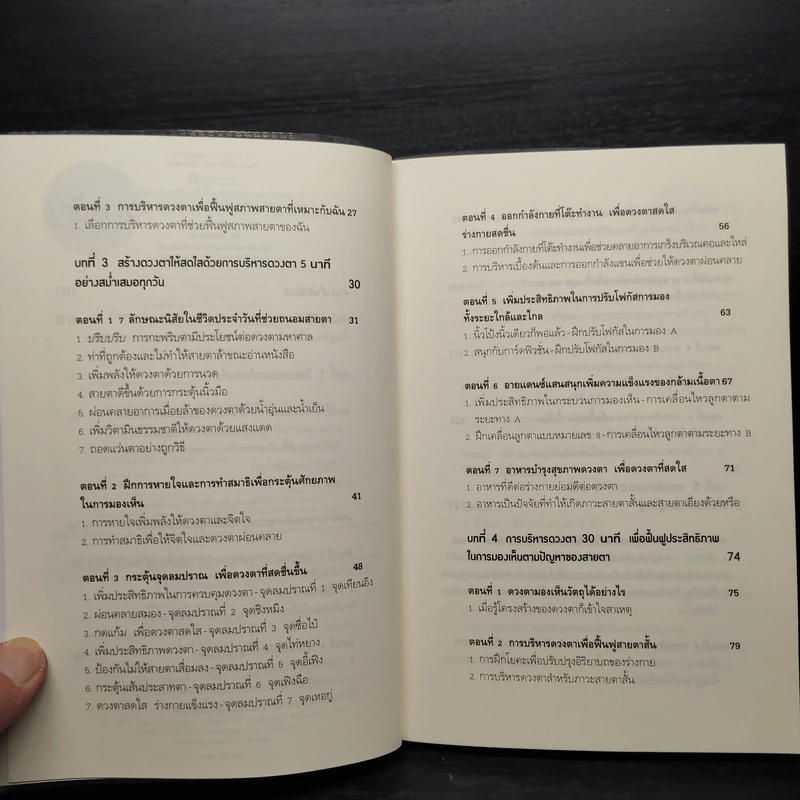 ตอนที่ 3 การบริหารดวงตาเพื่อฟื้นฟูสภาพสายตาที่เหมาะกับฉัน 27
1. เลือกการบริหารดวงตาที่ช่วยฟื้นฟูสภาพสายตาของฉัน
บทที่ 3 สร้างดวงตาให้สดใสด้วยการบริหารดวงตา 5 นาที
อย่างสม่ำเสมอทุกวัน 30
ตอนที่ 1 7 ลักษณะนิสัยในชีวิตประจำวันที่ช่วยถนอมสายตา 31
1. ปริบปริบ การกะพริบตามีประโยชน์ต่อดวงตามหาศาล
2. ท่าที่ถูกต้องและไม่ทำให้สายตาล้าขณะอ่านหนังสือ
3. เพิ่มพลังให้ดวงตาด้วยการนวด
4. สายตาดีขึ้นด้วยการกระตุ้นนิ้วมือ
5. ผ่อนคลายอาการเมื่อยล้าของดวงตาด้วยน้ำอุ่นและน้ำเย็น
6. เพิ่มวิตามินธรรมชาติให้ดวงตาด้วยแสงแดด
7. ถอดแว่นตาอย่างถูกวิธี
ตอนที่ 2 ฝึกการหายใจและการทำสมาธิเพื่อกระตุ้นศักยภาพ
ในการมองเห็น 41
1. การหายใจเพิ่มพลังให้ดวงตาและจิตใจ
2. การทำสมาธิเพื่อให้จิตใจและดวงตาผ่อนคลาย
ตอนที่ 3 กระตุ้นจุดลมปราณ เพื่อดวงตาที่สดชื่นขึ้น 48
1. เพิ่มประสิทธิภาพในการควบคุมดวงตา - จุดลมปราณที่ 1 จุดเทียนอิง
2. ผ่อนคลายสมอง - จุดลมปราณที่ 2 จุดชิงหมิง
3. กดแก้ม เพื่อดวงตาสดใส - จุดลมปราณที่ 3 จุดซื่อไป๋
4. เพิ่มประสิทธิภาพดวงตา - จุดลมปราณที่ 4 จุดไท่หยาง
5. ป้องกันไม่ให้สายตาเสื่อมลง - จุดลมปราณที่ 5 จุดอี้เฟิง
6. กระตุ้นเส้นประสาทตา - จุดลมปราณที่ 6 จุดเฟิงฉือ
7. ดวงตาสดใส ร่างกายแข็งแรง - จุดลมปราณที่ 7 จุดเหอกู่
ตอนที่ 4 ออกกำลังกายที่โต๊ะทำงาน เพื่อดวงตาสดใส
ร่างกายสดชื่น 56
1. การออกกำลังกายที่โต๊ะทำงานเพื่อช่วยคลายอาการเกร็งบริเวณคอและไหล่
2. การบริหารเบื้องต้นและการออกกำลังแขนเพื่อช่วยให้ดวงตาผ่อนคลาย
ตอนที่ 5 เพิ่มประสิทธิภาพในการปรับโฟกัสการมอง
ทั้งระยะใกล้และไกล 63
1. นิ้วโป้งนิ้วเดียวก็พอแล้ว - ฝึกปรับโฟกัสในการมอง A
2. สนุกกับการ์ดฟิวชั่น - ฝึกปรับโฟกัสในการมอง B
ตอนที่ 6 อายแดนซ์แสนสนุกเพิ่มความแข็งแรงของกล้ามเนื้อตา 67
1. เพิ่มประสิทธิภาพในกระบวนการมองเห็น - การเคลื่อนไหวลูกตาตาม
ระยะทาง A
2. ฝึกเคลื่อนลูกตาแบบหมายเลข 8 - การเคลื่อนไหวลูกตาตามระยะทาง B
ตอนที่ 7 อาหารบำรุงสุขภาพดวงตา เพื่อดวงตาที่สดใส 71
1. อาหารที่ดีต่อร่างกายย่อมดีต่อดวงตา
2. อาหารเป็นปัจจัยที่ทำให้เกิดภาวะสายตาสั้นและสายตาเอียงด้วยหรือ
บทที่ 4 การบริหารดวงตา 30 นาที เพื่อฟื้นฟูประสิทธิภาพ
ในการมองเห็นตามปัญหาของสายตา 74
ตอนที่ 1 ดวงตามองเห็นวัตถุได้อย่างไร 75
1. เมื่อรู้โครงสร้างของดวงตาก็เข้าใจสาเหตุ
ตอนที่ 2 การบริหารดวงตาเพื่อฟื้นฟูสายตาสั้น 79
1. การฝึกโยคะเพื่อปรับปรุงอิริยาบถของร่างกาย
2. การบริหารดวงตาสำหรับภาวะสายตาสั้น